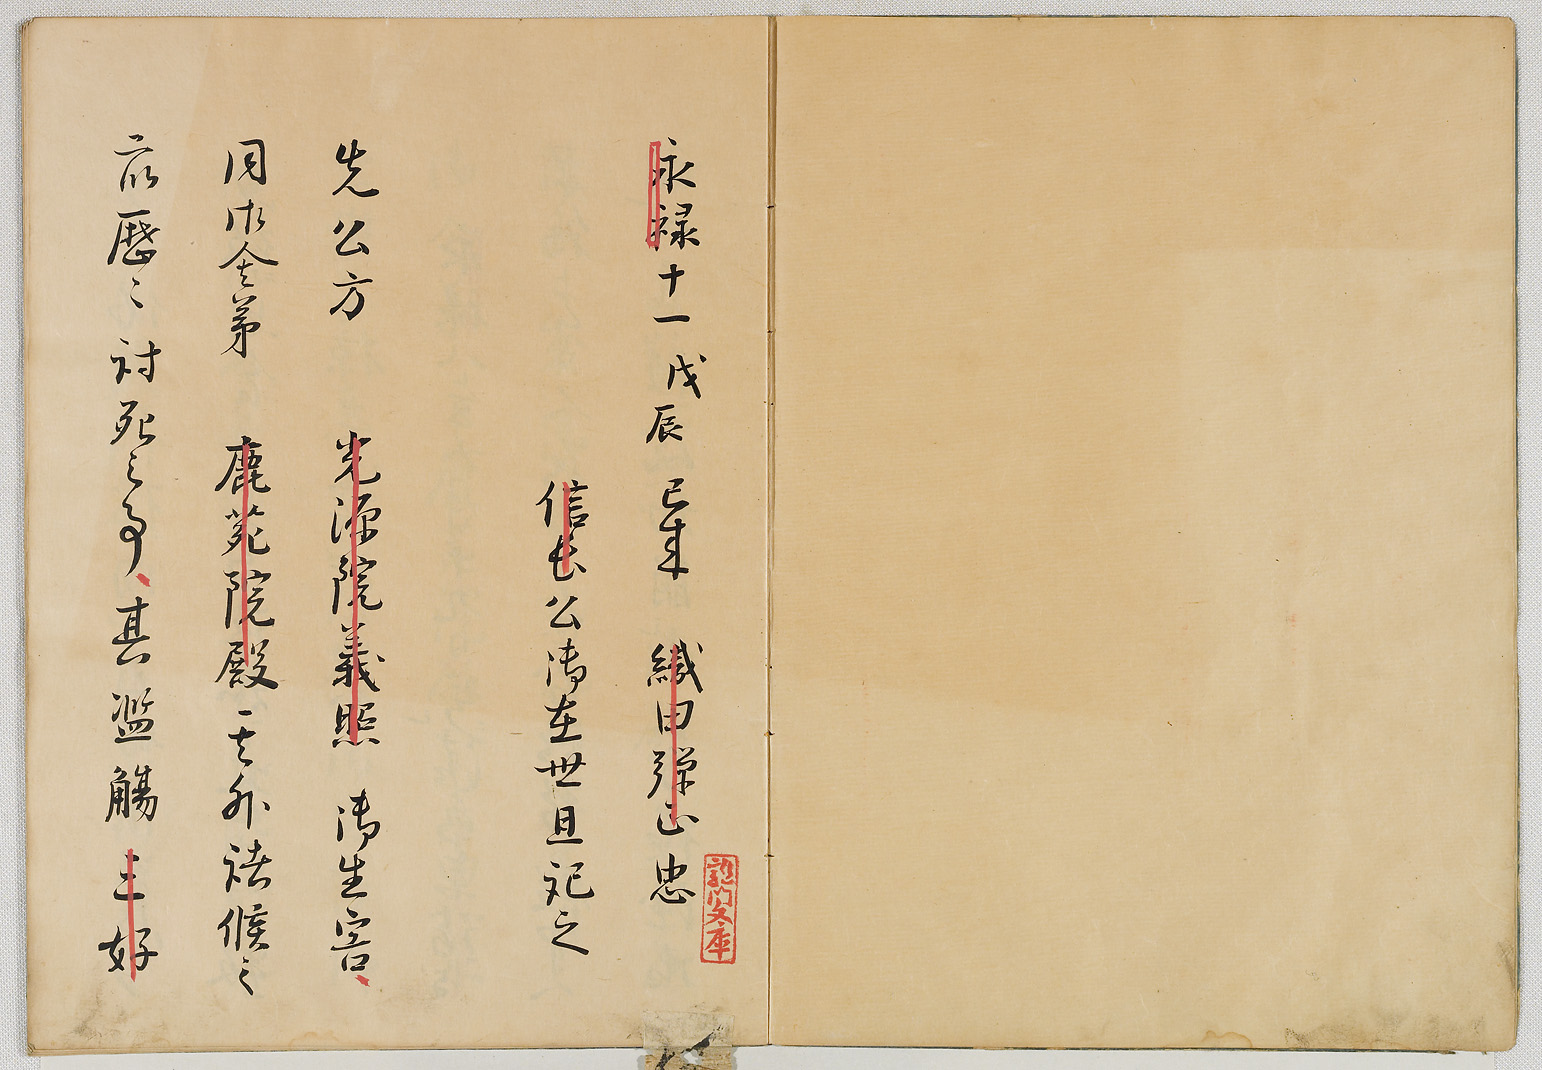 永禄十一戊辰已来 織田弾正忠
信長公御在世且記之
先公方 光源院義照 御生害
同御舎弟 鹿苑院殿其外諸候之
衆歴々討死之事其濫觴三好
龍門文庫